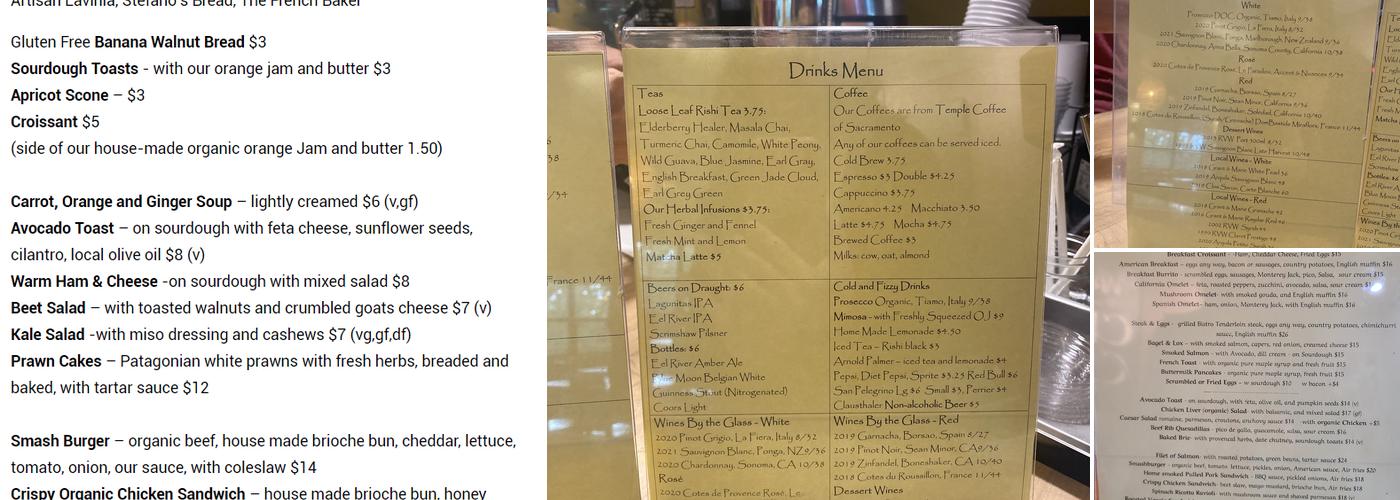 Artisan Lavinia, Stefano's Bread, The French Baker
Gluten Free Banana Walnut Bread $3
Sourdough Toasts - with our orange jam and butter $3
Apricot Scone – $3
Croissant $5
(side of our house-made organic orange Jam and butter 1.50)
Carrot, Orange and Ginger Soup – lightly creamed $6 (v,gf)
Avocado Toast – on sourdough with feta cheese, sunflower seeds,
cilantro, local olive oil $8 (v)
Warm Ham & Cheese -on sourdough with mixed salad $8
Beet Salad – with toasted walnuts and crumbled goats cheese $7 (v)
Kale Salad -with miso dressing and cashews $7 (vg,gf,df)
Prawn Cakes – Patagonian white prawns with fresh herbs, breaded and
baked, with tartar sauce $12
Smash Burger – organic beef, house made brioche bun, cheddar, lettuce,
tomato, onion, our sauce, with coleslaw $14
Crispy Organic Chicken Sandwich – house made brioche bun, honey
France 11/44
Drinks Menu
Teas
Loose Leaf Rishi Tea 3.75:
Elderberry Healer, Masala Chai,
Turmeric Chai, Camomile, White Peony,
Wild Guava, Blue Jasmine, Earl Gray,
English Breakfast, Green Jade Cloud,
Earl Grey Green
Our Herbal Infusions $3.75:
Fresh Ginger and Fennel
Fresh Mint and Lemon
Matcha Latte $5
Coffee
Our Coffees are from Temple Coffee
of Sacramento
Any of our coffees can be served iced.
Cold Brew 3.75
Espresso $3 Double $4.25
Cappuccino $3.75
Americano 4.25 Macchiato 3.50
Latte $4.75 Mocha $4.75
Brewed Coffee $3
Milks: cow, oat, almond
Beers on Draught: $6
Lagunitas IPA
Eel River IPA
Scrimshaw Pilsner
Bottles: $6
Eel River Amber Ale
Blue Moon Belgian White
Guinness Stout (Nitrogenated)
Coors Light
Cold and Fizzy Drinks
Prosecco Organic, Tiamo, Italy 9/38
Mimosa - with Freshly Squeezed OJ $9
Home Made Lemonade $4.50
Iced Tea – Rishi black $3
Arnold Palmer – iced tea and lemonade $4
Pepsi, Diet Pepsi, Sprite $3.25 Red Bull $6
San Pelegrino Lg $6 Small $3, Perrier $4
Clausthaler Non-alcoholic Beer $5
Wines By the Glass - White
2020 Pinot Grigio, La Fiera, Italy 8/32
2021 Sauvignon Blanc, Ponga, NZ 9/36
2020 Chardonnay, Sonoma, CA 10/38
Rosé
2020 Cotes de Provence Rosé, Le
Wines By the Glass - Red
2019 Garnacha, Borsao, Spain 8/27
2019 Pinot Noir, Sean Minor, CA9/36
2019 Zinfandel, Boneshaker, CA 10/40
2018 Cotes du Roussillon, France 11/44
Dessert Wines
White
Prosecco DOC, Organic, Tiamo, Italy 9/38
2020 Pinot Grigio, La Fiera, Italy 8/32
2021 Sauvignon Blanc, Ponga, Marlborough, New Zealand 9/36
2020 Chardonnay, Anna Bella, Sonoma County, California 10/38
Rosé
2020 Cotes de Provence Rosé, Le Paradou, Accent & Nuances 9/34
Red
2019 Garnacha, Borsao, Spain 8/27
2019 Pinot Noir, Sean Minor, California 9/36
2019 Zinfandel, Boneshaker, Soledad, California 10/40
Dessert Wines
Local Wines - White
Local Wines - Red
Breakfast Croissant - Ham, Cheddar Cheese, Fried Eggs $15
American Breakfast – eggs any way, bacon or sausages, country potatoes, English muffin $16
Breakfast Burrito - scrambled eggs, sausages, Monterey Jack, pico, Salsa, sour cream $15
California Omelet – feta, roasted peppers, zucchini, avocado, salsa, sour cream
Mushroom Omelet- with smoked gouda, and English muffin $16
Spanish Omelet- ham, onion, Monterey Jack, with English muffin $16
Steak & Eggs - grilled Bistro Tenderloin steak, eggs any way, country potatoes, chimichurri
sauce, English muffin $26
Bagel & Lox – with smoked salmon, capers, red onion, creamed cheese $15
Smoked Salmon - with Avocado, dill cream - on Sourdough $15
French Toast - organic pure maple syrup, and fresh fruit $15
Buttermilk Pancakes - organic pure maple syrup, fresh fruit $15
Scrambled or Fried Eggs – w sourdough $10 w bacon +$4
Avocado Toast - on sourdough, with feta, olive oil, and pumpkin seeds $14 (v)
Chicken Liver (organic) Salad- with balsamic, and mixed salad $17 (gf)
Caesar Salad romaine, parmesan, croutons, anchovy sauce $14 -with organic Chicken +$5
Beef Rib Quesadillas - pico de gallo, guacamole, salsa, sour cream $16
Baked Brie- with provencal herbs, date chutney, sourdough toasts $14 (v)
Filet of Salmon- with roasted potatoes, green beans, tartar sauce $24
Smashburger - organic beef, tomato, lettuce, pickles, onion, American sauce, Air fries $20
Home smoked Pulled Pork Sandwich - BBQ sauce, pickled onions, Air fries $18
Crispy Chicken Sandwich- beet slaw, mango mustard, brioche bun, Air fries $18